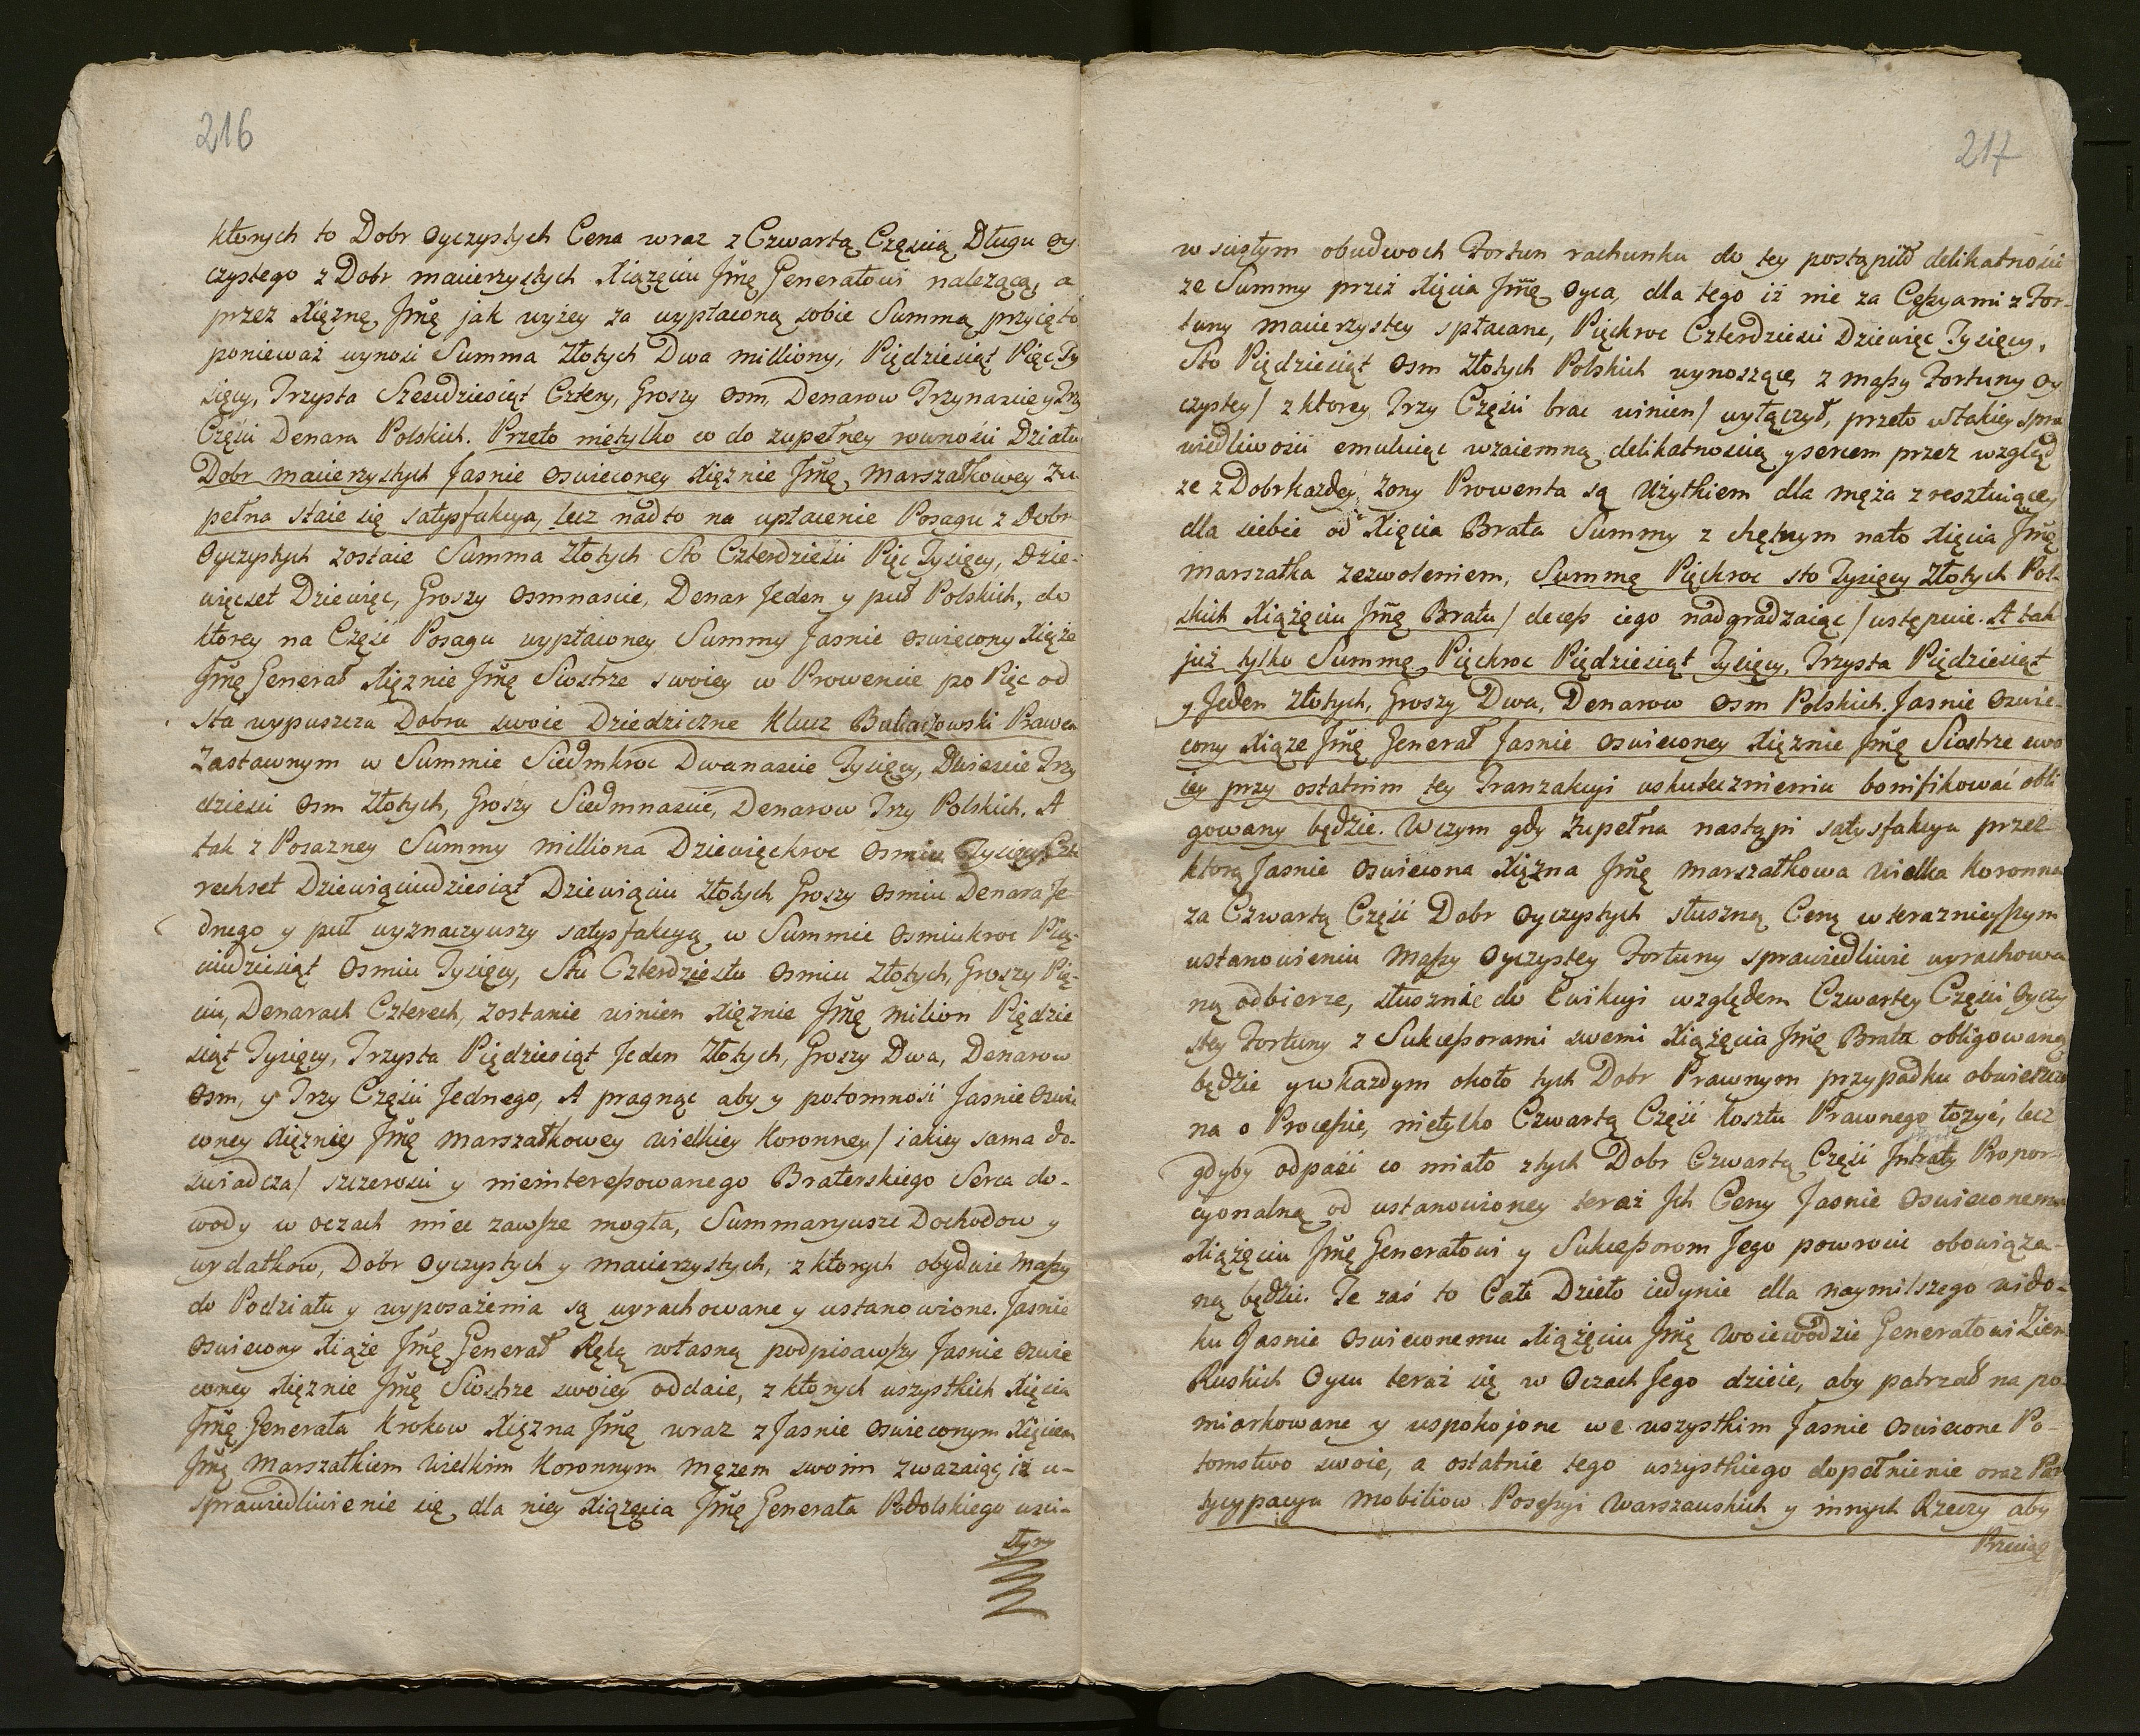 216
których to Dobr Oyczystych Cena wraz z Czwartą Częscią Długu Oy
czystego z Dobr macierzystych Xiązęciu Jmę Generałowi należącą, a
przez Xięznę Jmę jak wyżey za wypłaconą sobie Summą przyięto
ponieważ wynosi Summa Złotych Dwa milliony, Pięćdziesiąt Pięc Ty
sięcy, Trzysta Szescdziesiąt Cztery, Groszy Osm, Denarow Trzynascie y Trzy
Części Denara Polskich. Przeto nietylko co do zupełney rowności Działu
Dobr macierzystych Jasnie Oswieconey Xięznie Jmę Marszałkowey zu-
pełna staie się satysfakcya, lecz nadto na upłacenie Posagu z Dobr
Oyczystych zostaie Summa Złotych Sto Czterdzieści Pięc Tysięcy, Dzie-
więcset Dziewięc, Groszy Osmnascie, Denar Jeden y puł Polskich, do
ktorey na Część Posagu wypłaconey Summy Jasnie Oswiecony Xiąże
Jmę Generał Xięznie Jmę Siostrze swoiey w Prowencie po Pięc od
Sta wypuszcza Dobra swoie Dziedziczne Klucz Prawem
Zastawnym w Summie Siedmkroc Dwanascie Tysięcy, Dwiescie Trzy
dziesci Osm Złotych, Groszy Siedmnascie, Denarow Trzy Polskich. A
tak z Posazney Summy milliona Dziewięckroc Osmiu Tysięcy Czte
rechset Dziewięciudziesiąt Dziewiąciu Złotych Groszy Osmiu Denara Je-
dnego y puł wyznaczywszy satysfakcyą w Summie Osmiukroc Pię-
ciudziesiąt Osmiu Tysięcy, Stu Czterdziestu Osmiu Złotych, Groszy Pię-
ciu, Denarach Czterech, zostanie winien Xięznie Jmę milion Piędzie
siąt Tysięcy, Trzysta Piędziesiąt Jeden Złotych, Groszy Dwa, Denarow
Osm, y Trzy Części Jednego, A pragnąc aby y potomność Jasnie Oswie
coney Xięzniey Jmę Marszałkowey wielkiey Koronney / iakiey sama do-
swiadcza / szczerości y nieinteressowanego Braterskiego Serca do-
wody w oczach miec zawsze mogła, Summaryusze Dochodow y
wydatkow, Dobr Oyczystych y macierzystych, z ktorych obydwie Massy
do Podziału y wyposażenia są wyrachowane y ustanowione. Jasnie
Oswiecony Xiąże Jmę Generał Ręką własną podpisawszy Jasnie Oswie
coney Xięznie Jmę Siostrze swoiey oddaie, z ktorych wszystkich Xięcia
Jmę Generała Krokow Xięzna Jmę wraz z Jasnie Oswieconym Xięciem
Jmę Marszałkiem Wielkim Koronnym Męzem swoim zwazaiąc, iż u-
sprawiedliwienie się dla niey Xiązęcia Jmę Generała Podolskiego usci-
słym
217
w scisłym obudwoch Fortun rachunku do tey postąpił delikatności
ze Summy przez Xięcia Jmę Oyca, dla tego iż nie za Cessyami z For-
tuny macierzystey spłacane, Pięckroc Czterdzieści Dziewięc Tysięcy,
Sto Pięcdziesiąt Osm Złotych Polskich wynoszące, z massy Fortuny Oy
czystey / z ktorey Trzy Części brac winien / wyłączył, przeto w takiey spra
wiedliwości emuluiąc wzaiemną delikatnoscią y sercem przez wzgląd
ze z Dobr każdey Żony Prowenta są Użytkiem dla męża z resztuiącey
dla siebie od Xięcia Brata Summy z chętnym nato Xięcia Jmę
Marszałka zezwoleniem, Summę Pięckroc sto Tysięcy Złotych Pol-
skich Xiążęciu Jmę Bratu / decess iego nadgradzaiąc / ustępuie. A tak
już tylko Summę Pięckroc Pięcdziesiąt Tysięcy, Trzysta Pięcdziesiąt
y Jeden Złotych, Groszy Dwa, Denarow Osm Polskich. Jasnie Oswie-
cony Xiąże Jmę Jenerał Jasnie Oswieconey Xięznie Jmę Siostrze swo
iey przy ostatnim tey Tranzakcyi uskutecznieniu bonifikować obli
gowany będzie. W czym gdy zupełna nastąpi satysfakcya przez
ktorą Jasnie Oswiecona Xięzna Jmę Marszałkowa Wielka Koronna
za Czwartą Część Dobr Oyczystych słuszną Cenę w teraznieyszym
ustanowieniu Massy Oyczystey Fortuny sprawiedliwie wyrachowa
ną odbierze, słusznie do Ewikcyi względem Czwartey Części Oyczy
stey Fortuny z Sukcessorami swemi Xiążęcia Jmę Brata obligowaną
będzie y w każdym około tych Dobr Prawnym przypadku obwieszczo
na o Processie, nietylko Czwartą Część Kosztu Prawnego łożyć, lecz
gdyby odpaść co miało z tych Dobr Czwartą Część Intraty Propor-
cyonalną od ustanowioney teraz Jch Ceny Jasnie Oswieconemu
Xiążęciu Jmę Generałowi y Sukcessorom Jego powrocić obowiąza-
ną będzie. Te zaś to Całe Dzieło iedynie dla naymilszego wido-
ku Jasnie Oswieconemu Xiążęciu Jmę Woiewodzie Generałowi Ziem
Ruskich Oycu teraz się w Oczach Jego dzieie, aby patrzał na po-
miarkowane y uspokojone we wszystkim Jasnie Oswiecone Po-
tomstwo swoie, a ostatnie tego wszystkiego dopełnienie oraz Par
tycypacya Mobiliow Possessyi Warszawskich y innych Rzeczy aby